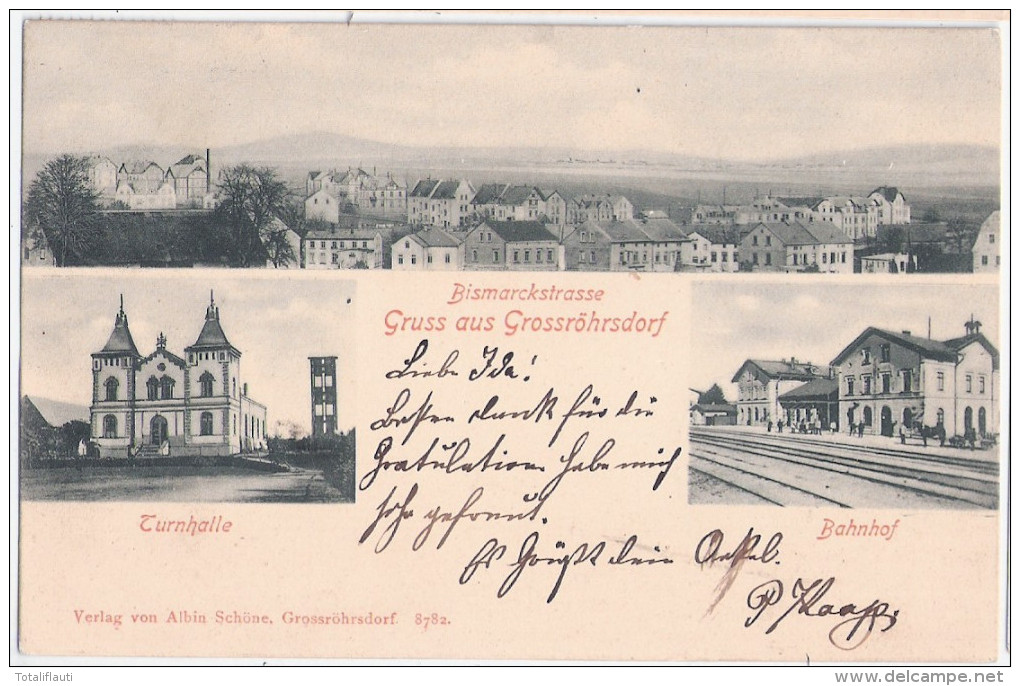 Bismarckstrasse
Gruss aus Grossröhrsdorf
Liebe Ida!
Besten Dank für die
Gratulation habe mich
sehr gefreut.
Es Grüßt dein Onkel.
P
Turnhalle
Bahnhof
Verlag von Albin Schöne, Grossröhrsdorf. 8782.
Totaliflauti
www.delcampe.net